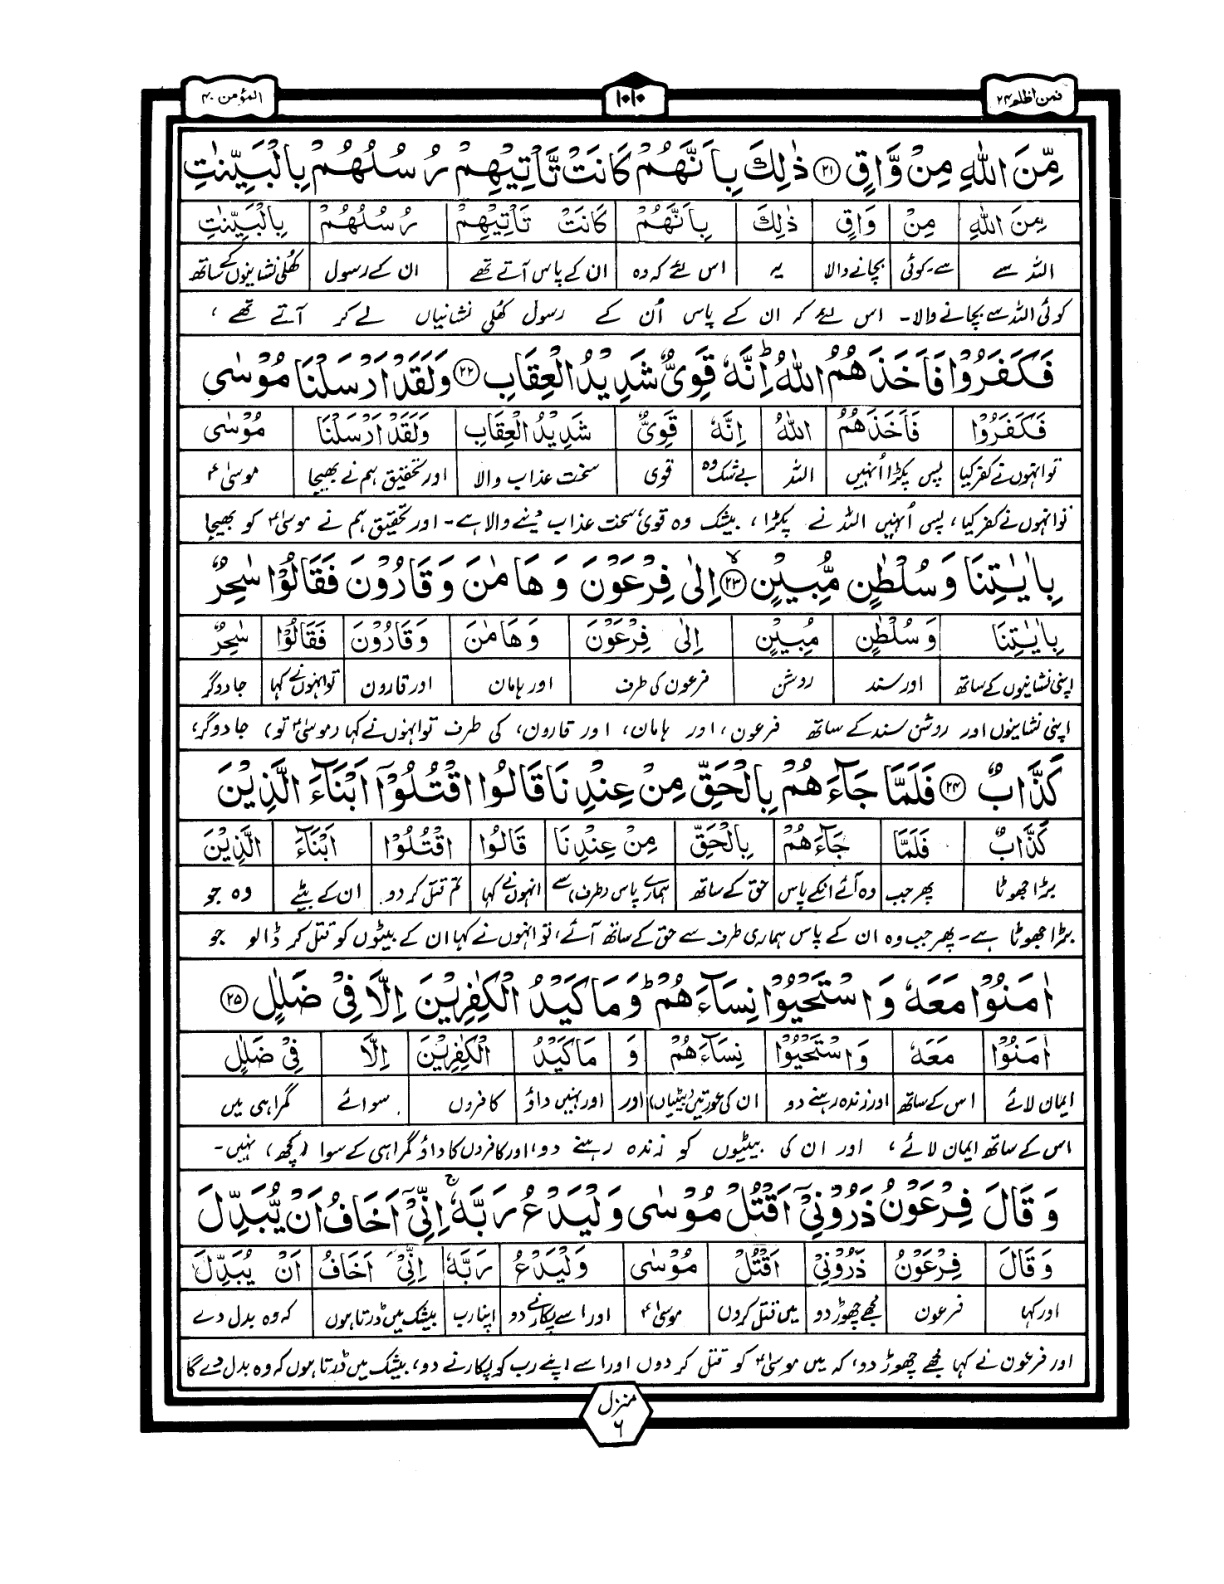 فمن اظلم ۲۴
۱۰۱۰
المؤمن ۴۰
مِّنَ اللّٰهِ مِنْ وَّاقٍ ﴿۲۱﴾ ذٰلِكَ بِاَنَّهُمْ كَانَتْ تَّاْتِيْهِمْ رُسُلُهُمْ بِالْبَيِّنٰتِ
مِنَ اللّٰهِ مِنْ وَاقٍ ذٰلِكَ بِاَنَّهُمْ كَانَتْ تَاْتِيْهِمْ رُسُلُهُمْ بِالْبَيِّنٰتِ
اللہ سے سے۔کوئی بچانے والا یہ اس لئے کہ وہ ان کے پاس آتے تھے ان کے رسول کھلی نشانیوں کے ساتھ
کوئی اللہ سے بچانے والا۔ اس لئے کہ ان کے پاس اُن کے رسول کھلی نشانیاں لے کر آتے تھے ،
فَكَفَرُوْا فَاَخَذَهُمُ اللّٰهُ ؕ اِنَّهٗ قَوِيٌّ شَدِيْدُ الْعِقَابِ ﴿۲۲﴾ وَلَقَدْ اَرْسَلْنَا مُوْسٰى
فَكَفَرُوْا فَاَخَذَهُمُ اللّٰهُ اِنَّهٗ قَوِيٌّ شَدِيْدُ الْعِقَابِ وَلَقَدْ اَرْسَلْنَا مُوْسٰى
تو انہوں نے کفر کیا پس پکڑا اُنہیں اللہ بے شک وہ قوی سخت عذاب والا اور تحقیق ہم نے بھیجا موسیٰؑ
تو انہوں نے کفر کیا، پس اُنہیں اللہ نے پکڑا، بیشک وہ قوی سخت عذاب دینے والا ہے۔ اور تحقیق ہم نے موسیٰؑ کو بھیجا
بِاٰيٰتِنَا وَسُلْطٰنٍ مُّبِيْنٍ ﴿۲۳﴾ ۙ اِلٰى فِرْعَوْنَ وَهَامٰنَ وَقَارُوْنَ فَقَالُوْا سٰحِرٌ
بِاٰيٰتِنَا وَسُلْطٰنٍ مُبِيْنٍ اِلٰى فِرْعَوْنَ وَهَامٰنَ وَقَارُوْنَ فَقَالُوْا سٰحِرٌ
اپنی نشانیوں کے ساتھ اور سند روشن فرعون کی طرف اور ہامان اور قارون تو انہوں نے کہا جادوگر
اپنی نشانیوں اور روشن سند کے ساتھ فرعون، اور ہامان، اور قارون، کی طرف تو انہوں نے کہا (موسیٰؑ تو) جادوگر،
كَذَّابٌ ﴿۲۴﴾ فَلَمَّا جَآءَهُمْ بِالْحَقِّ مِنْ عِنْدِنَا قَالُوا اقْتُلُوْٓا اَبْنَآءَ الَّذِيْنَ
كَذَّابٌ فَلَمَّا جَآءَهُمْ بِالْحَقِّ مِنْ عِنْدِنَا قَالُوا اقْتُلُوْٓا اَبْنَآءَ الَّذِيْنَ
بڑا جھوٹا پھر جب وہ آئے انکے پاس حق کے ساتھ ہمارے پاس (طرف) سے انہوں نے کہا تم قتل کر دو ان کے بیٹے وہ جو
بڑا جھوٹا ہے۔ پھر جب وہ ان کے پاس ہماری طرف سے حق کے ساتھ آئے، تو انہوں نے کہا ان کے بیٹوں کو قتل کر ڈالو جو
اٰمَنُوْا مَعَهٗ وَاسْتَحْيُوْا نِسَآءَهُمْ ؕ وَمَا كَيْدُ الْكٰفِرِيْنَ اِلَّا فِيْ ضَلٰلٍ ﴿۲۵﴾
اٰمَنُوْا مَعَهٗ وَاسْتَحْيُوْا نِسَآءَهُمْ وَ مَا كَيْدُ الْكٰفِرِيْنَ اِلَّا فِيْ ضَلٰلٍ
ایمان لائے اس کے ساتھ اور زندہ رہنے دو ان کی عورتیں (بیٹیاں) اور اور نہیں داؤ کافروں سوائے گمراہی میں
اس کے ساتھ ایمان لائے، اور ان کی بیٹیوں کو زندہ رہنے دو، اور کافروں کا داؤ گمراہی کے سوا (کچھ) نہیں۔
وَقَالَ فِرْعَوْنُ ذَرُوْنِيْٓ اَقْتُلْ مُوْسٰى وَلْيَدْعُ رَبَّهٗ ۚ اِنِّيْٓ اَخَافُ اَنْ يُّبَدِّلَ
وَقَالَ فِرْعَوْنُ ذَرُوْنِيْٓ اَقْتُلْ مُوْسٰى وَلْيَدْعُ رَبَّهٗ اِنِّيْٓ اَخَافُ اَنْ يُبَدِّلَ
اور کہا فرعون مجھے چھوڑ دو میں قتل کروں موسیٰؑ اور اسے پکارنے دو اپنا رب بیشک میں ڈرتا ہوں کہ وہ بدل دے
اور فرعون نے کہا مجھے چھوڑ دو، کہ میں موسیٰؑ کو قتل کر دوں اور اسے اپنے رب کو پکارنے دو، بیشک میں ڈرتا ہوں کہ وہ بدل دے گا
منزل
۶